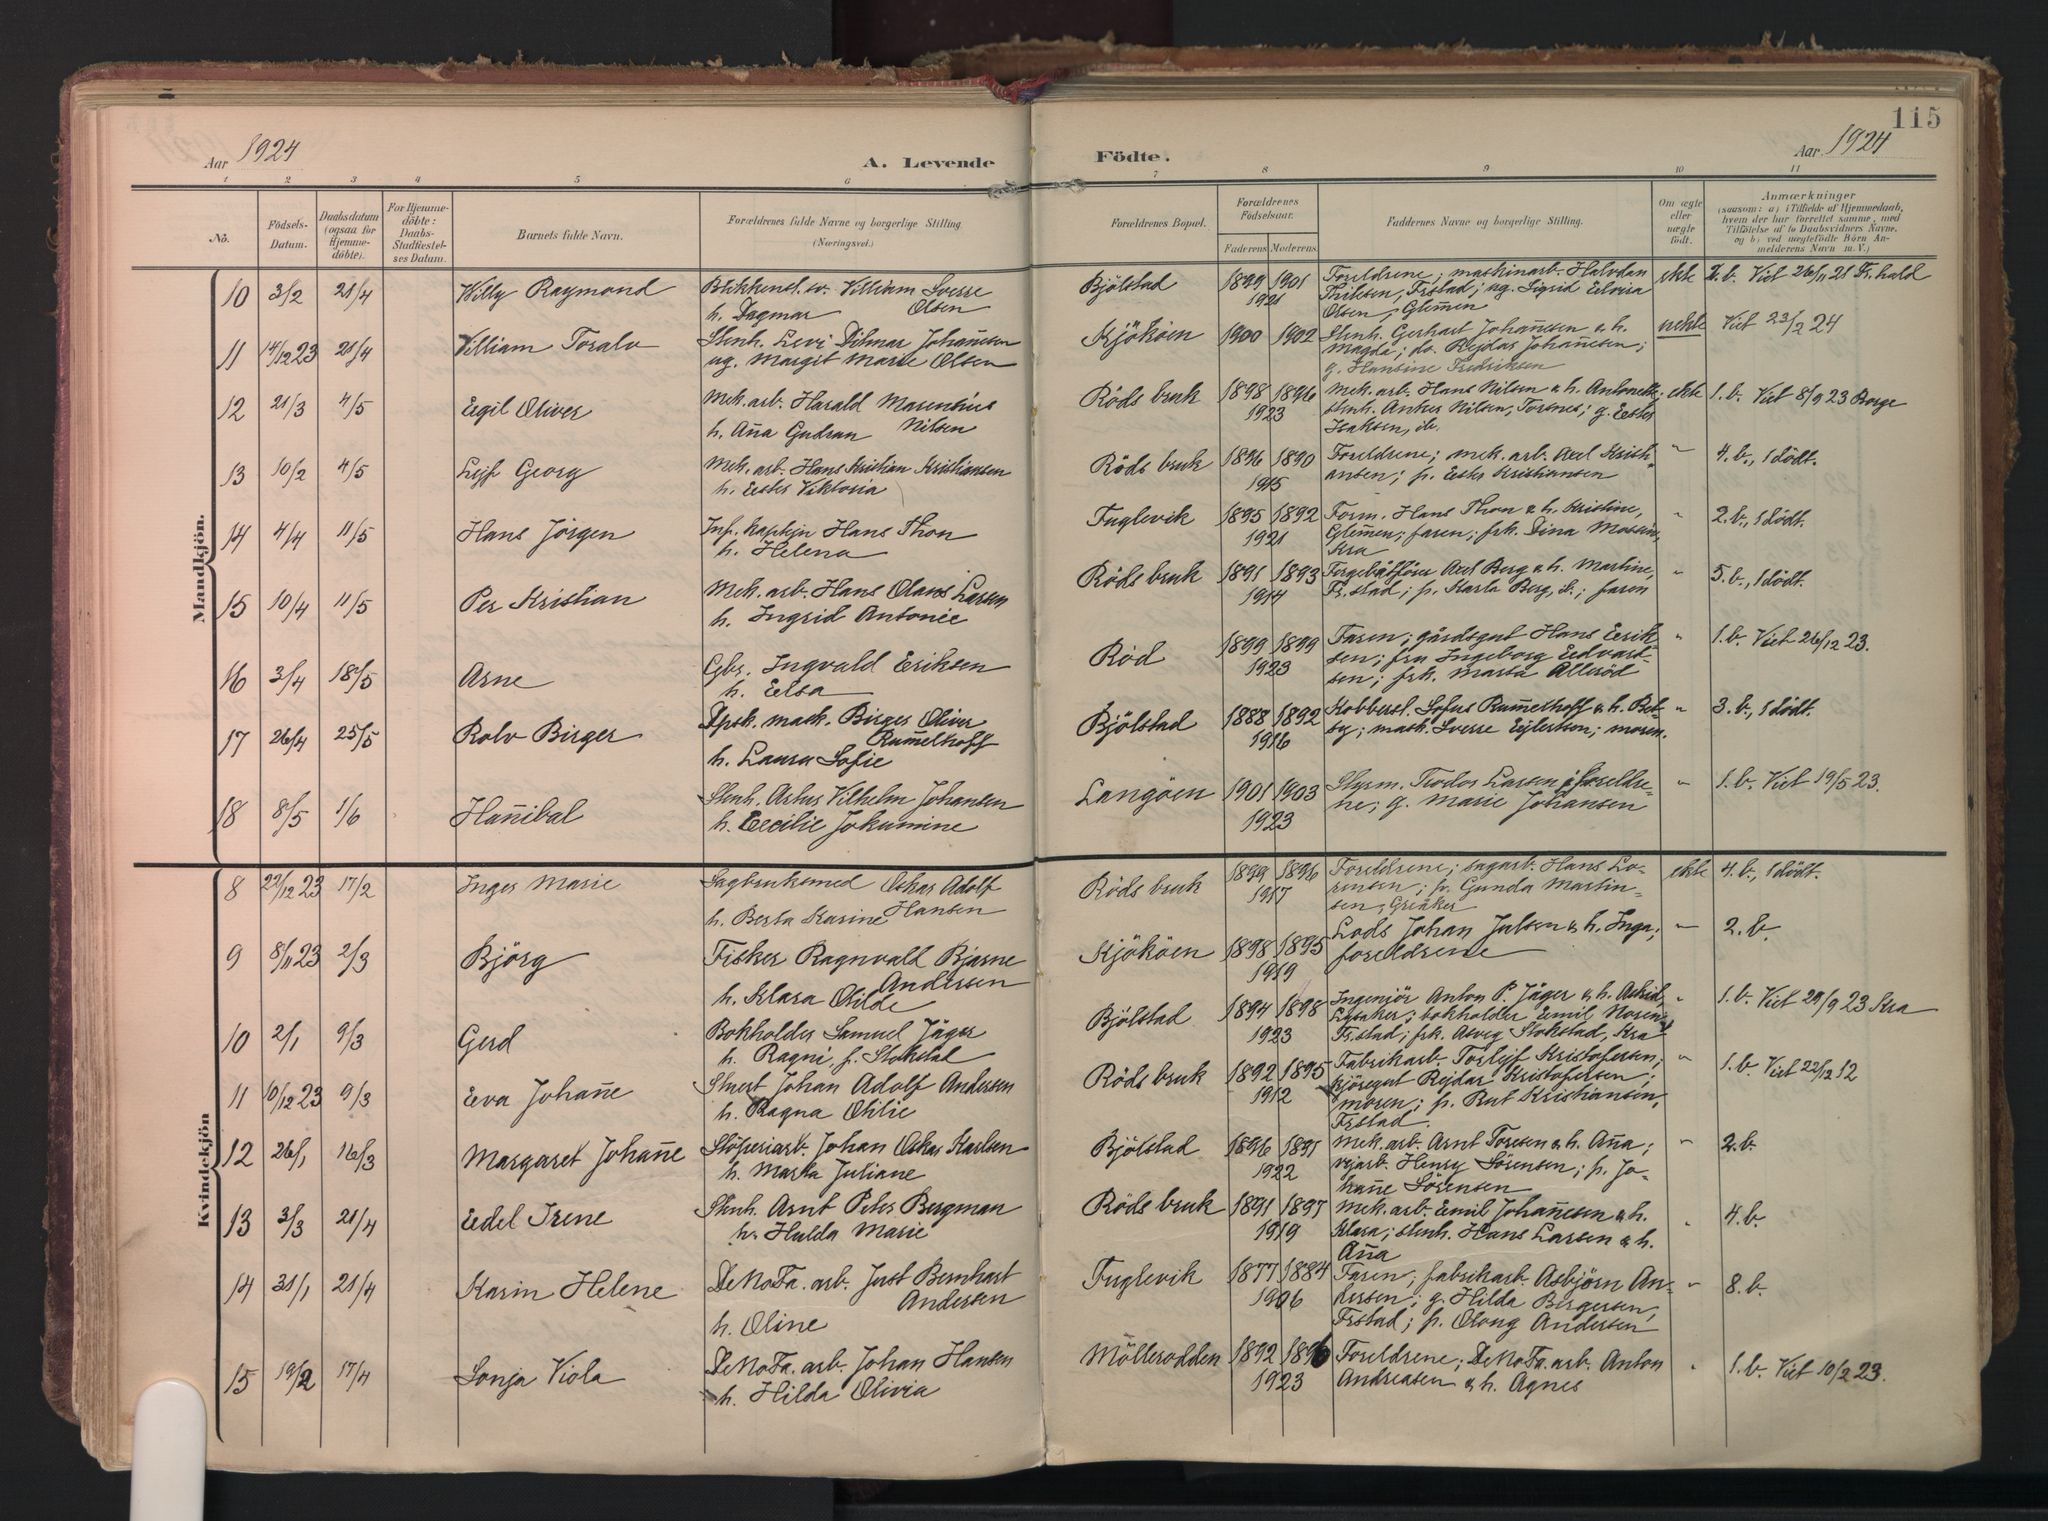 115
Aar 1924
A. Levende
Födte.
Aar 1924
1 2 3 4 5 6 7 8 9 10 11
No.
Födsels-
Datum.
Daabsdatum
(ogsaa for
Hjemme-
döbte).
For Hjemme-
döbte:
Daabs-
Stadfæstel-
ses Datum.
Barnets fulde Navn.
Forældrenes fulde Navne og borgerlige Stilling
(Næringsvei.)
Forældrenes Bopæl.
Forældrenes
Födselsaar.
Faderens. Moderens.
Faddernes Navne og borgerlige Stilling.
Om ægte
eller
uægte
født.
Anmærkninger
(saasom: a) i Tilfælde af Hjemmedaab,
hvem der har forrettet samme, med
Tilføielse af to Daabsvidners Navne,
og b) ved uægtefödte Börn An-
melderens Navn m. V.)
Mandkjön.
10 3/2 21/4 Willy Raymond Blikkensl. sv. Villiam Sverre
Olsen
h. Dagmar
Bjölstad 1899 1901
1921
Foreldrene; maskinarb. Halvdan
Olsen, Glem̄en
ekte 2. b. Viet 26/11 21 Fr.hald
11 14/12 23 21/4 Villiam Toralv Stenh. Levi Ditmar Johan̄esen
ug. Margit Marie Olsen
Kjököen 1900 1902 Stenh. Gerhart Johan̄esen & h.
Magda; do. Rejdar Johan̄esen;
g. Hansine Fredriksen
uekte Viet 23/2 24
12 21/3 4/5 Egil Oliver Mek. arb. Harald Marentius
Nilsen
h. An̄a Gudrun
Röds bruk 1898 1896
1923
Mek. arb. Hans Nilsen & h. Antonette;
stenh. Anker Nilsen, Torsnes; g. Ester
Isaksen, ib.
ekte 1. b. Viet 8/9 23 Borge
13 10/2 4/5 Lejf Georg Mek. arb. Hans Kristian Kristiansen
h. Ester Viktoria
Röds bruk 1896 1890
1915
Foreldrene; mek. arb. Axel Kristi-
ansen; p. Ester Kristiansen
" 4. b., 1 dödt.
14 4/4 11/5 Hans Jörgen Inf. kaptejn Hans Thon
h. Helena
Fuglevik 1895 1892
1921
Form. Hans Thon & h. Kristine,
Glem̄en; faren; frk. Dina
Kra
" 2. b., 1 dödt.
15 10/4 11/5 Per Kristian Mek. arb. Hans Olaves Larsen
h. Ingrid Antonie
Röds bruk 1891 1893
1914
Fergebåtförer Axel Berg & h. Martine,
Fr.stad; p. Karla Berg, ib.; faren
" 5. b., 1 dödt.
16 3/4 18/5 Arne Gbr. Ingvald Eriksen
h. Elsa
Röd 1899 1899
1923
Faren; gårdsgut Hans Erik-
sen; fru Ingeborg Edvart-
sen; frk. Marta Alleröd
" 1. b. Viet 26/12 23.
17 26/4 25/5 Rolv Birger Dpsk. mask. Birger Oliver
Rum̄elhoff
h. Laura Sofie
Bjölstad 1888 1892
1916
Kobbersl. Sofus Rum̄elhoff & h. Bet-
sy; mask. Sverre Ejlertsen; moren.
" 3. b., 1 dödt.
18 8/5 1/6 Han̄ibal Stenh. Artur Vilhelm Johansen
h. Cecilie Jokumine
Langöen 1901 1903
1923
Styrm. Teodor Larsen; foreldre-
ne; g. Marie Johansen
" 1. b. Viet 19/5 23.
Kvindekjön
8 22/12 23 17/2 Inger Marie Sagbruksmed Oskar Adolf
Hansen
h. Berta Karine
Röds bruk 1899 1896
1917
Foreldrene; sagarb. Hans Lo-
rensen; p. Gunda Martin-
sen, Greåker
ekte 4. b., 1 dödt.
9 8/11 23 2/3 Björg Fisker Ragnvald Bjarne
Andersen
h. Klara Otilde
Kjököen 1898 1895
1919
Lods Johan Julsen & h. Inga;
foreldrene
" 2. b.
10 2/1 9/3 Gerd Bokholder Samuel Jäger
h. Ragni f. Stokstad
Bjölstad 1894 1898
1923
Ingenjör Anton P. Jäger & h. Astrid,
Lysaker; bokholder Emil Noren
Fr.stad; frk. Asveg Stokstad, Kra
" 1. b. Viet 29/9 23 Kra
11 10/12 23 9/3 Eva Johan̄e Stuert Johan Adolf Andersen
h. Ragna Otilie
Röds bruk 1892 1895
1912
Fabrikarb. Torlejf Kristofersen;
kjöregut Rejdar Kristofersen;
moren; p. Rut Kristiansen,
Fr.stad.
" 1. b. Viet 22/12 12
12 26/1 16/3 Margaret Johan̄e Stöperiarb. Johan Oskar Karlsen
h. Marta Juliane
Bjölstad 1896 1891
1922
Mek. arb. Arnt Toresen & h. An̄a;
vejarb. Henry Sörensen; p. Jo-
han̄e Sörensen
" 2. b.
13 3/3 21/4 Edel Irene Stenh. Arnt Peter Bergman
h. Hulda Marie
Röds bruk 1891 1897
1919
Mek. arb. Emil Johan̄esen & h.
Klara; stenh. Hans Larsen & h.
An̄a
" 4. b.
14 31/1 21/4 Karin Helene DeNoFa. arb. Just Bernhart
Andersen
h. Oline
Fuglevik 1877 1884
1906
Faren; fabrikarb. Asbjörn An-
dersen; g. Hilda Bergersen,
Fr.stad; p. Olaug Andersen
" 8. b.
15 19/2 17/4 Sonja Viola DeNoFa. arb. Johan Hansen
h. Hilda Olivia
Möllerodden 1892 1896
1923
Foreldrene; DeNoFa. arb. Anton
Andreasen & h. Agnes
" 1. b. Viet 10/2 23.